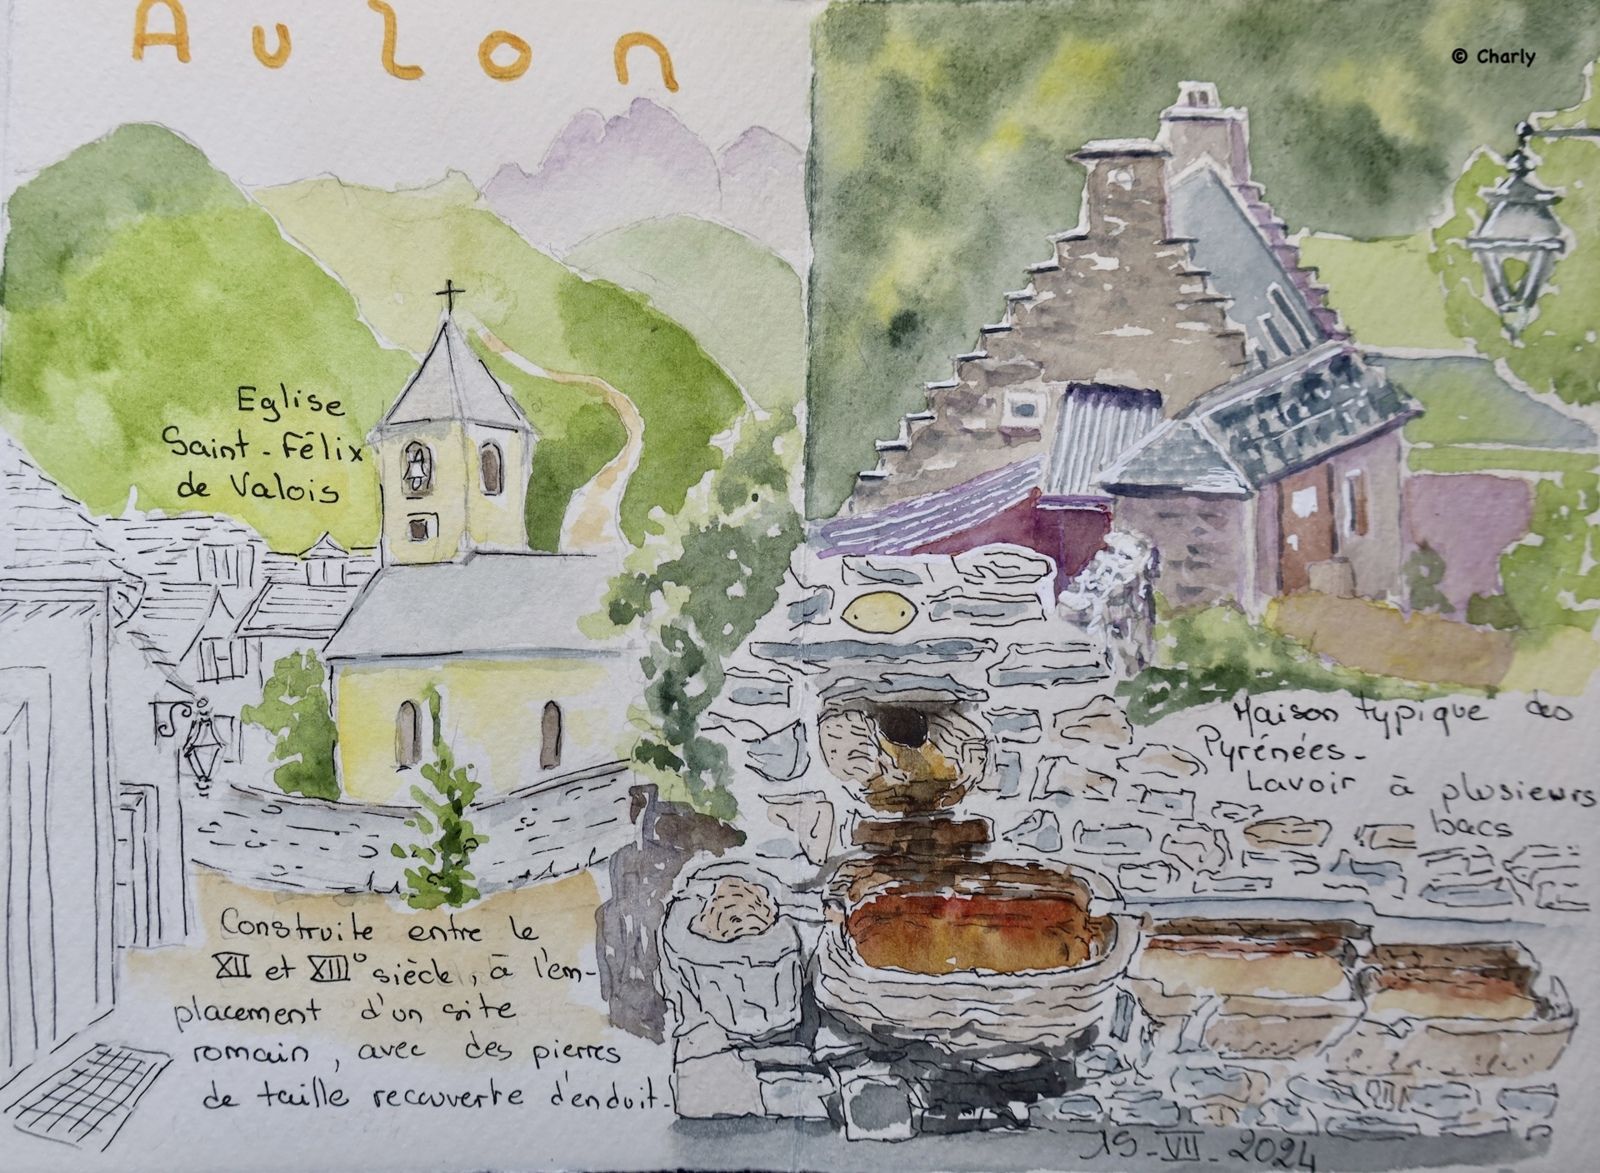 Aulon
© Charly
Eglise
Saint-Félix
de Valois
Maison typique des
Pyrénées-
Lavoir à plusieurs
bacs
Construite entre le
XII et XIII° siècle, à l'em-
placement d'un site
romain, avec des pierres
de taille recouverte d'enduit.
19-VII-2024